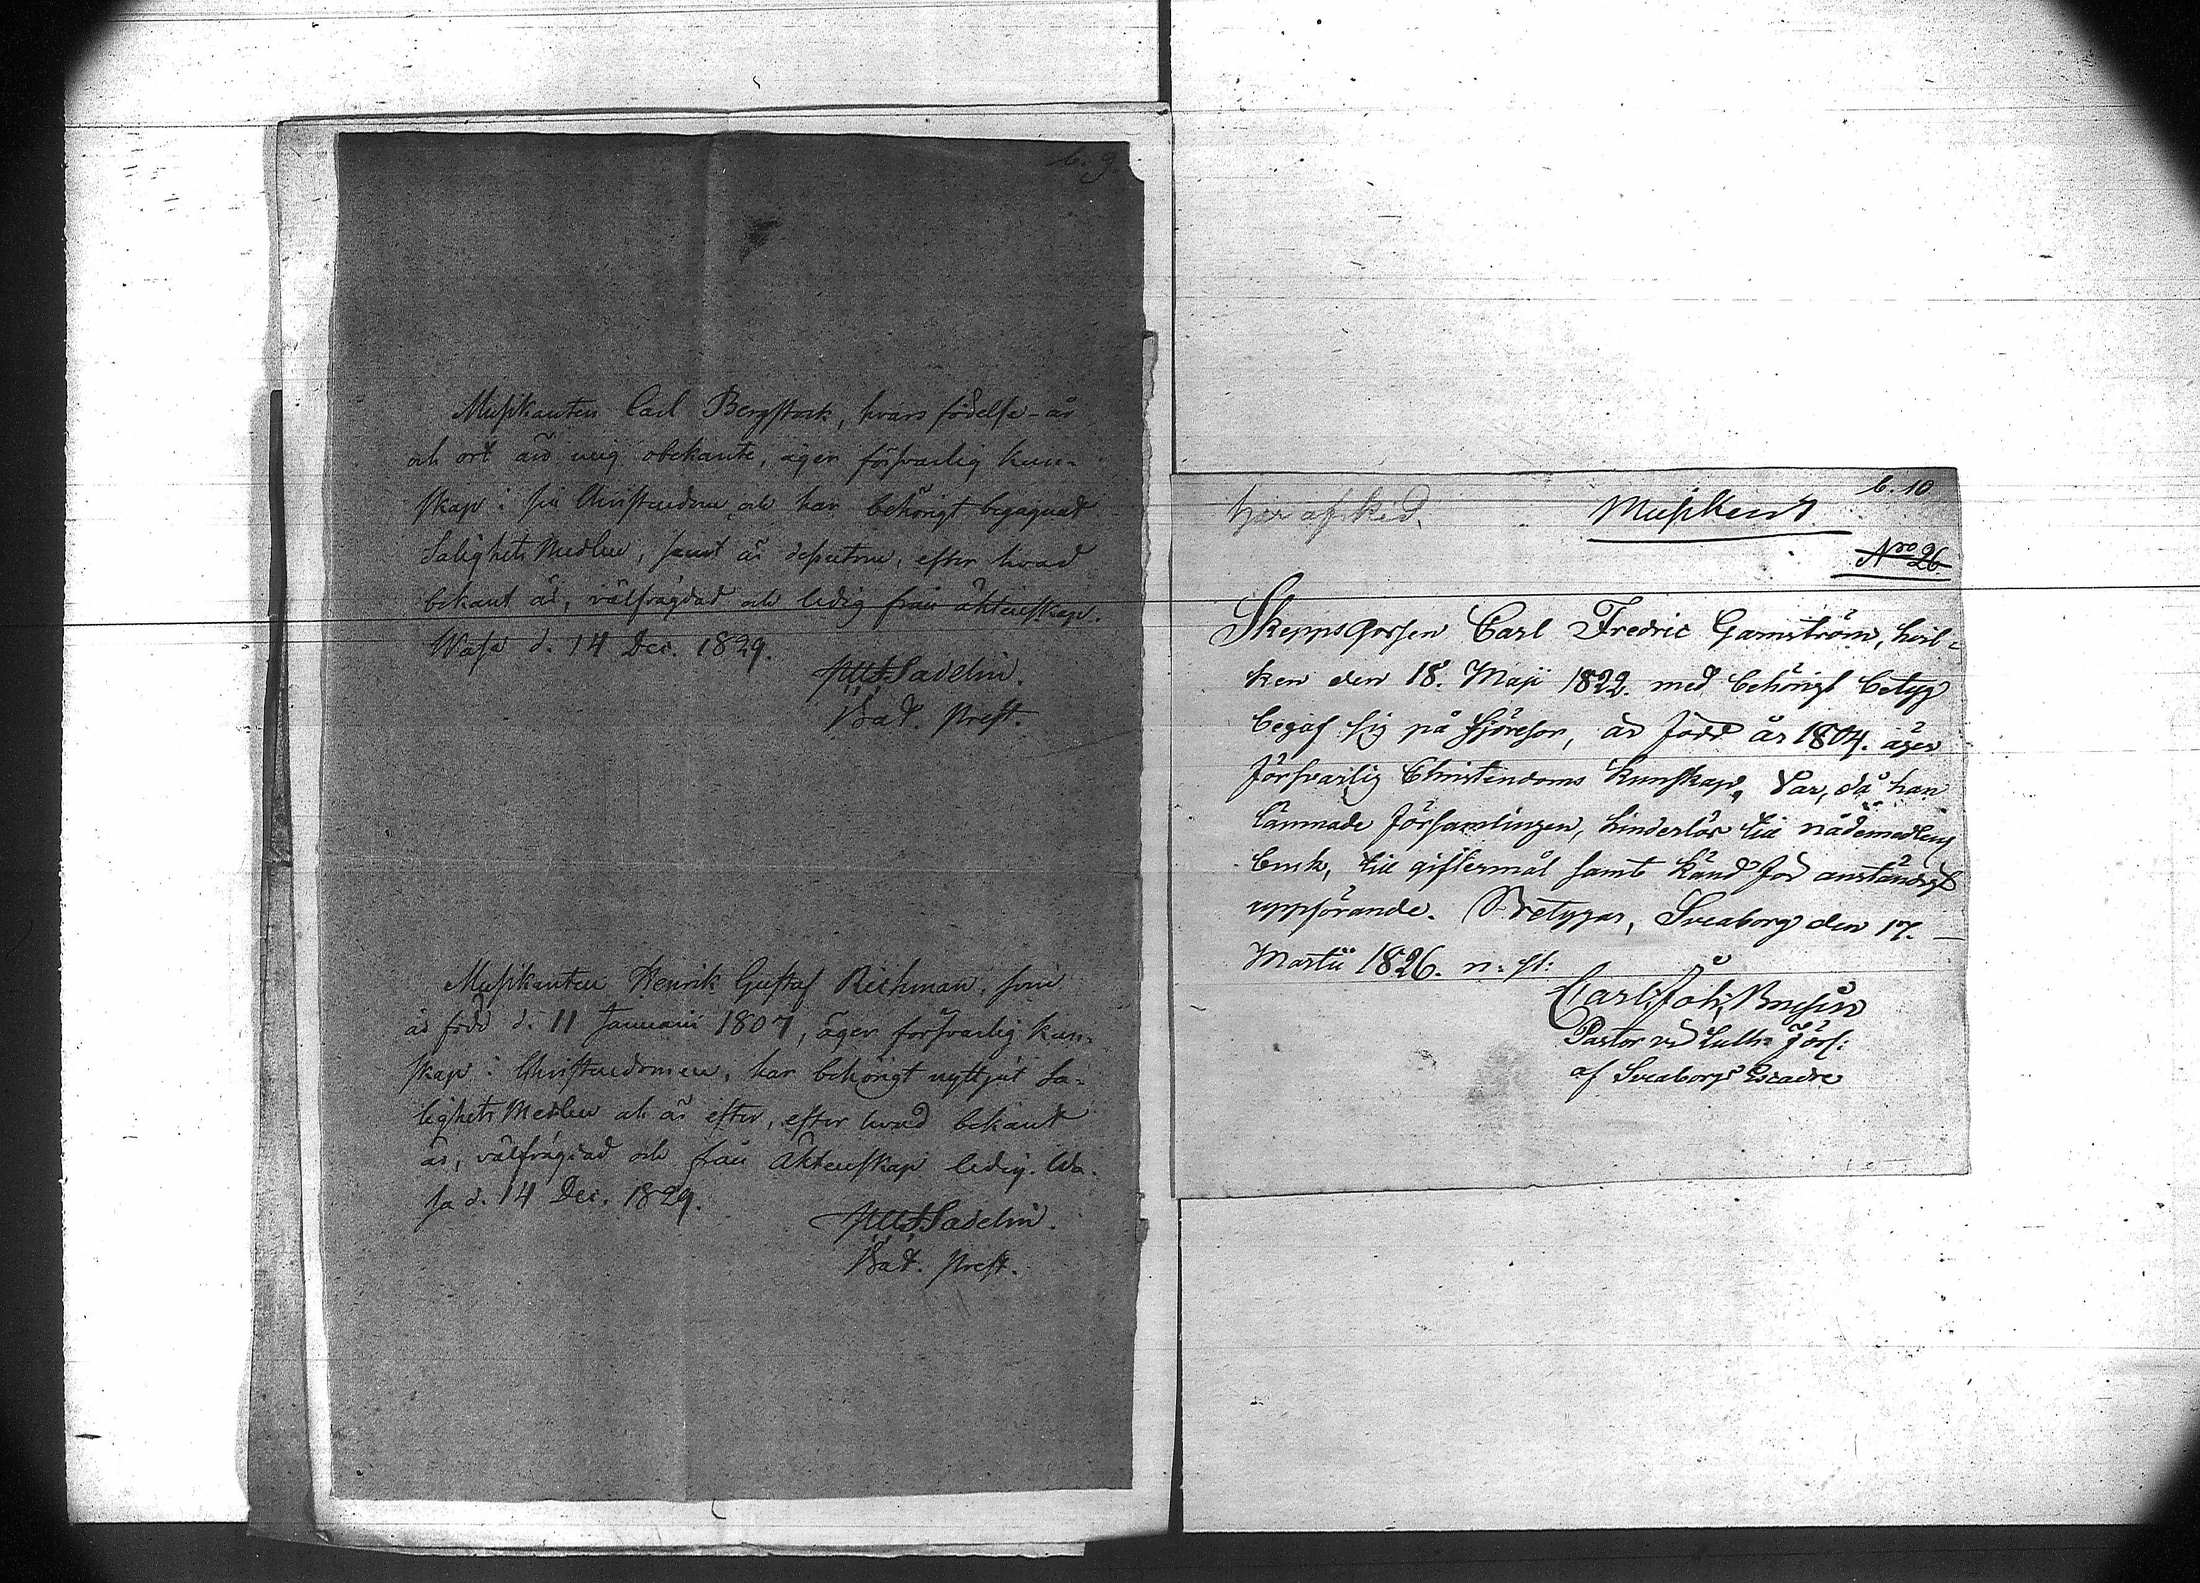 b. 9.
Musikanten Carl Bergstock, hvars födelse-år
och ort äro mig obekante, äger försvarlig kun-
skap i sin Christendom och har behörigt begagnat
Salighets Medlen, samt är dessutom, efter hvad
bekant är, välfrägdad och ledig från äktenskap.
Wasa d. 14 Dec. 1829.
Sadelin.
Bat. Prest.
Musikanten Henrik Gustaf Richman, som
är född d. 11 Januarii 1807, äger försvarlig kun-
skap i Christendomen, har behörigt nyttjat Sa-
lighets Medlen och är efter, efter hvad bekant
är, välfrägdad och från Äktenskap ledig. Wa-
sa d. 14 Dec. 1829.
Sadelin.
Bat. Prest.
b. 10
har afsked.
Musikant
Nro 26.
Skeppsgossen Carl Fredric Gamström, hvil-
ken den 18. Maji 1822. med behörigt betyg
begaf sig på sjöresor, är född år 1804. äger
försvarlig Christendoms kunskap, Var, då han
lämnade församlingen, hinderlös till nådemedlens
bruk, till giftermål samt känd för anständigt
uppförande. Betygar, Sveaborg den 17.
Martii 1826. n. st:
Carl Joh:
Pastor vid Luth: förs:
af Sveaborgs Escadre